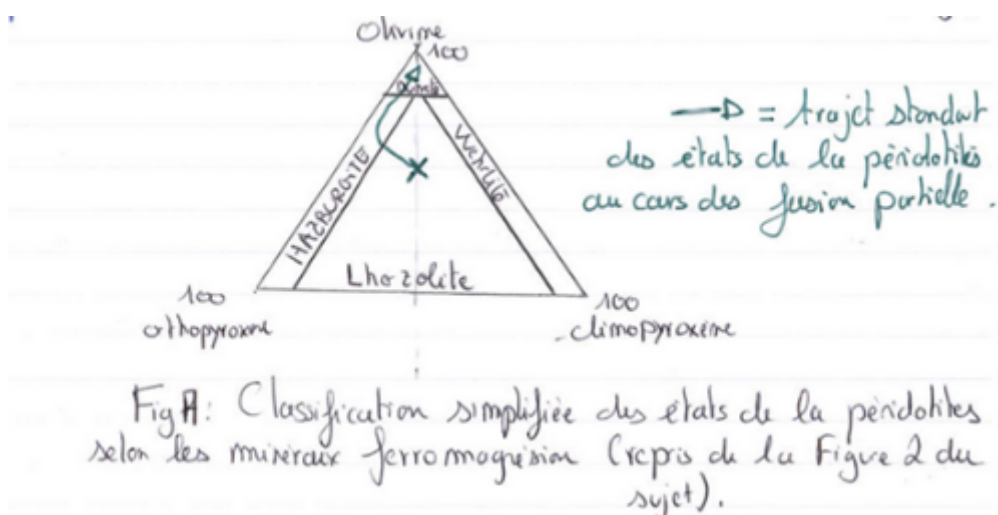 Olivine
100
Dunite
HAZBURGITE
WEHRLITE
Lherzolite
100
orthopyroxene
100
clinopyroxène
→ = trajet standart
des états de la péridotites
au cours des fusion partielle.
Fig A: Classification simplifiée des états de la péridotites
selon les minéraux ferromagnésien (repris de la Figure 2 du
sujet).